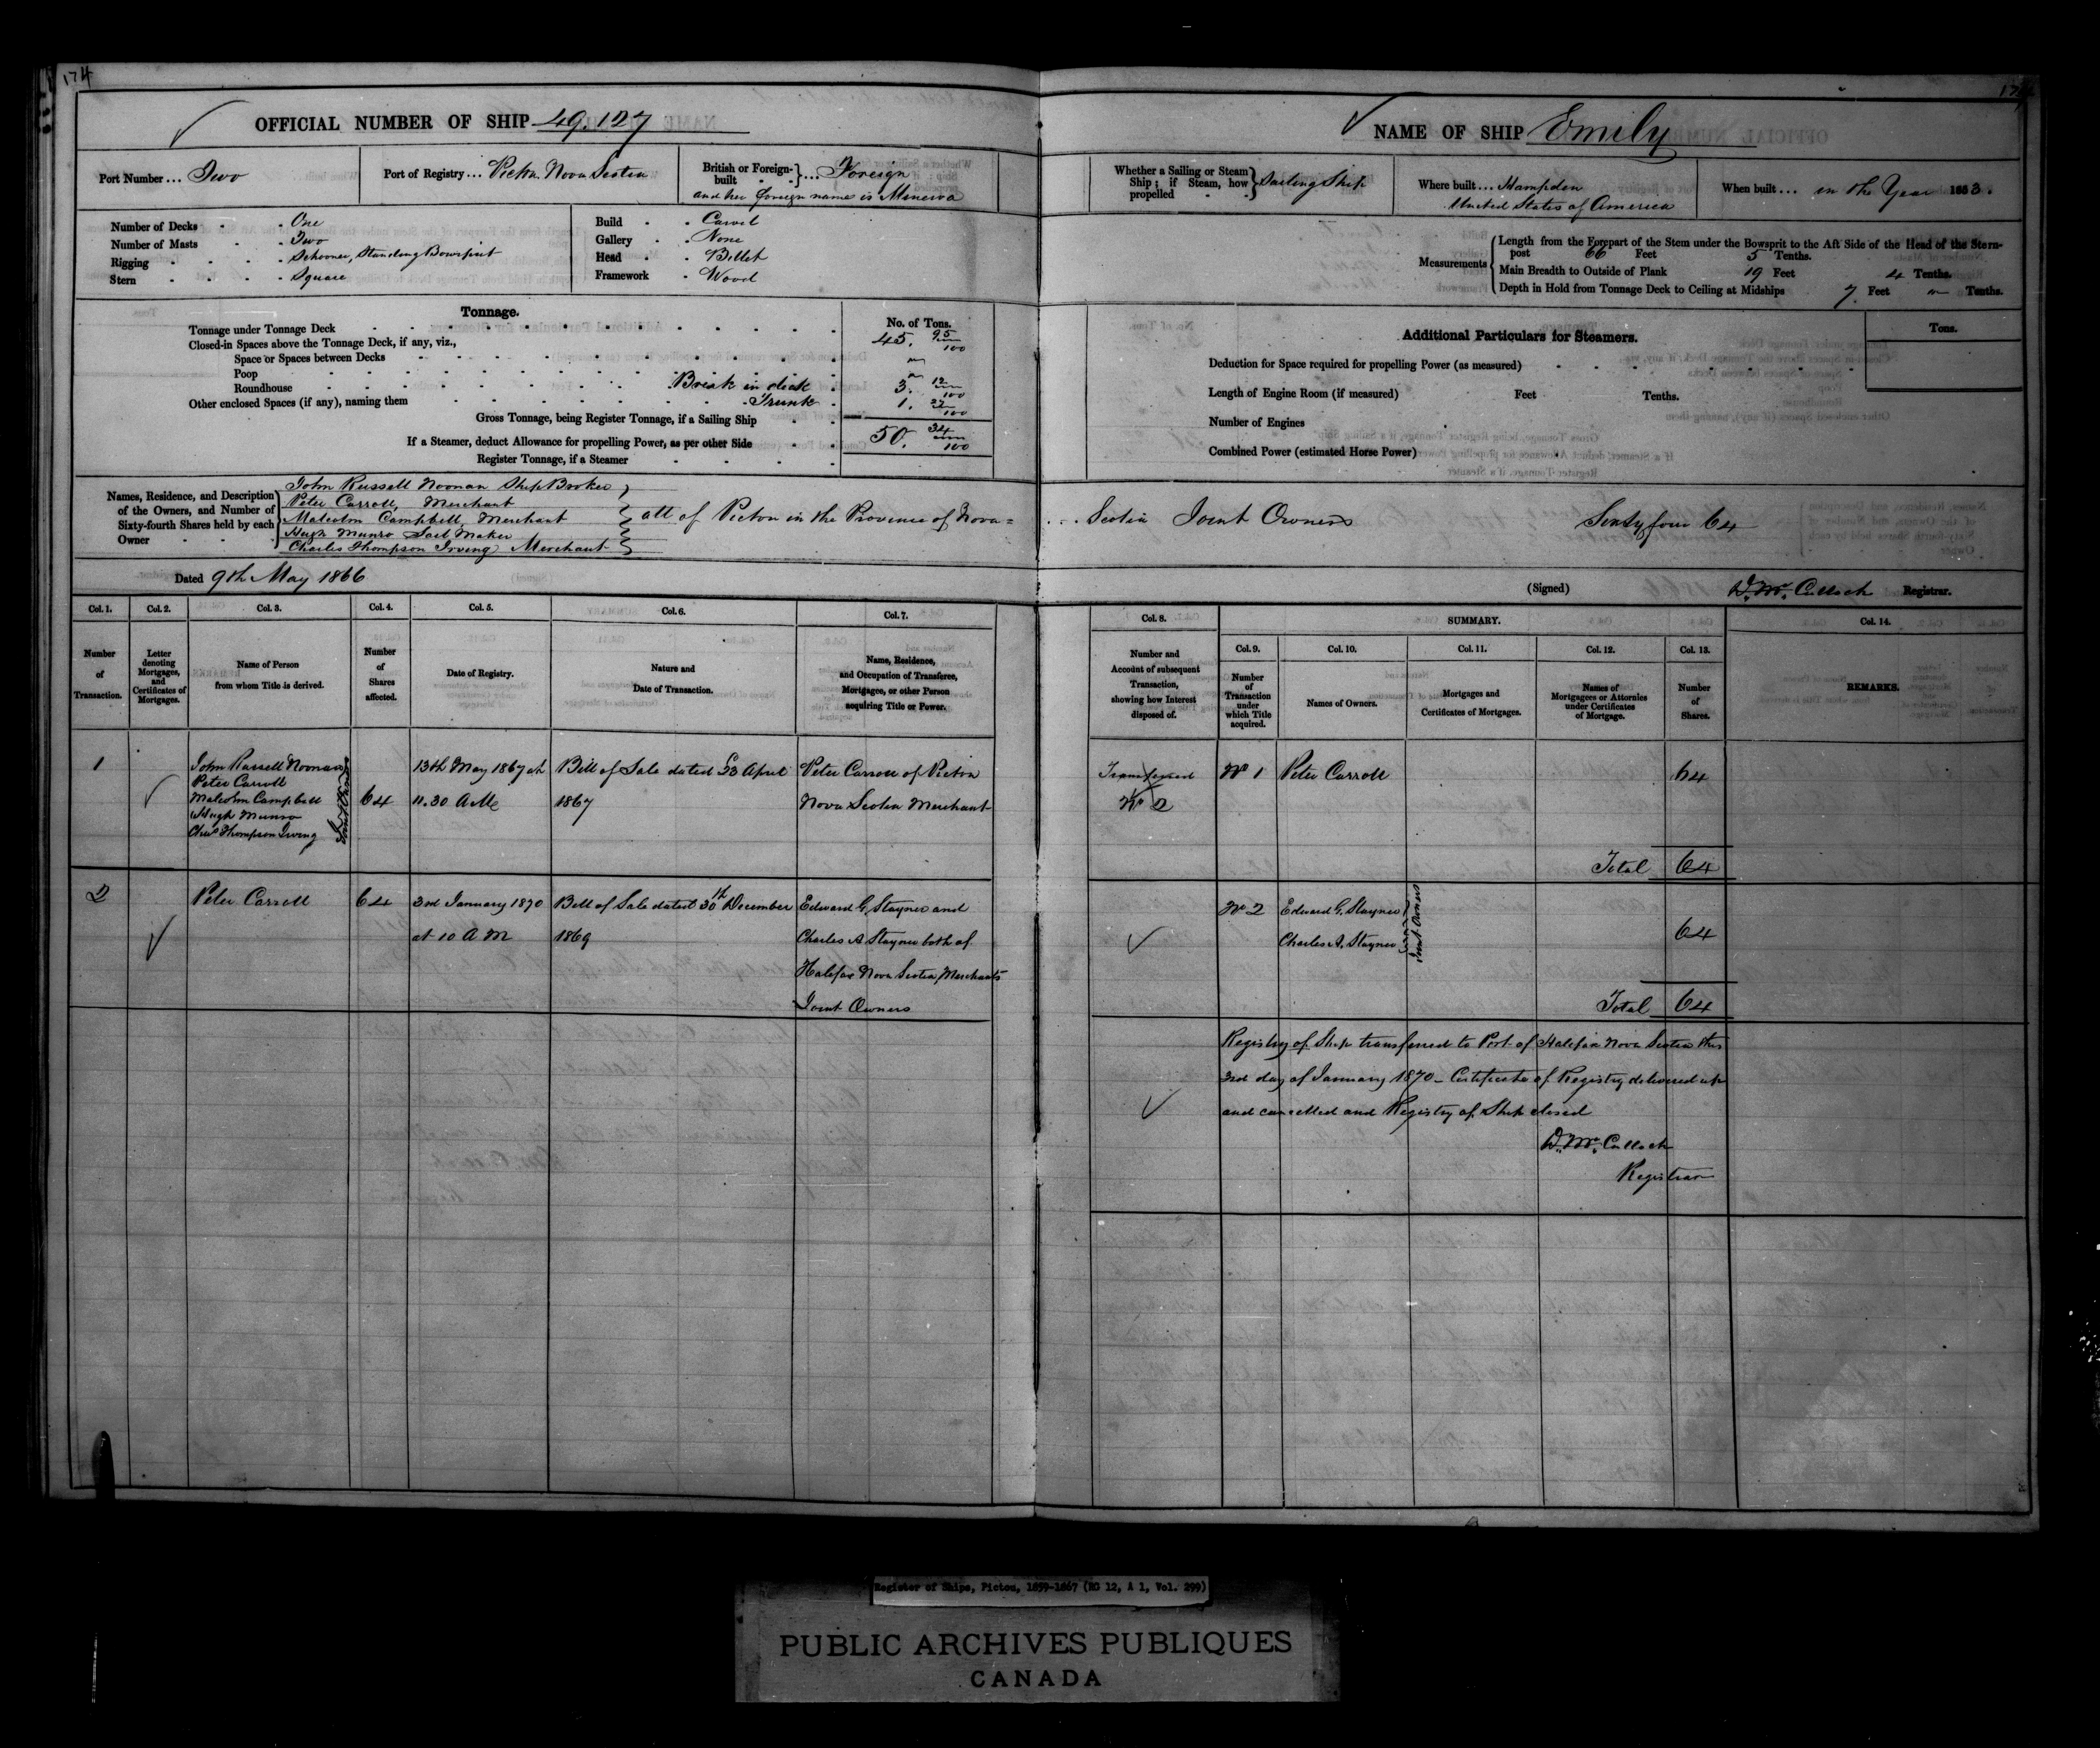 174
OFFICIAL NUMBER OF SHIP 49.127
Port Number ... Two
Port of Registry ... Pictou Nova Scotia
British or Foreign-built } ... Foreign
and her foreign name is Minerva
Number of Decks - One
Number of Masts - Two
Rigging - Schooner, Standing Bowsprit
Stern - Square
Build - Carvel
Gallery - None
Head - Billet
Framework - Wood
Tonnage.
No. of Tons.
Tonnage under Tonnage Deck 45. 95/100
Closed-in Spaces above the Tonnage Deck, if any, viz.,
Space or Spaces between Decks
Poop
Roundhouse Break in deck 3. 12/100
Other enclosed Spaces (if any), naming them Trunk 1. 27/100
Gross Tonnage, being Register Tonnage, if a Sailing Ship
If a Steamer, deduct Allowance for propelling Power, as per other Side 50. 34/100
Register Tonnage, if a Steamer
Names, Residence, and Description of the Owners, and Number of Sixty-fourth Shares held by each Owner
John Russell Noonan Ship Broker
Peter Carroll, Merchant
Malcolm Campbell, Merchant
Hugh Munro Sail Maker
Charles Thompson Irving Merchant
all of Pictou in the Province of Nova=
Dated 9th May 1866
Col. 1. Col. 2. Col. 3. Col. 4. Col. 5. Col. 6. Col. 7.
Number of Transaction.
Letter denoting Mortgages, and Certificates of Mortgages.
Name of Person from whom Title is derived.
Number of Shares affected.
Date of Registry.
Nature and Date of Transaction.
Name, Residence, and Occupation of Transferee, Mortgagee, or other Person acquiring Title or Power.
1
John Russell Noonan
Peter Carroll
Malcolm Campbell
Hugh Munro
Chas Thompson Irving
Joint Owners
64
13th May 1867 at
11.30 AM
Bill of Sale dated 23 April
1867
Peter Carroll of Pictou
Nova Scotia Merchant
2
Peter Carroll
64
3rd January 1870
at 10 AM
Bill of Sale dated 30th December
1869
Edward G. Stayner and
Charles A Stayner both of
Halifax Nova Scotia, Merchants
Joint Owners
174
NAME OF SHIP Emily
Whether a Sailing or Steam Ship; if Steam, how propelled } Sailing Ship
Where built ... Hampden
United States of America
When built ... in the Year 1853.
Measurements
Length from the Forepart of the Stem under the Bowsprit to the Aft Side of the Head of the Stern-
post 66 Feet 5 Tenths.
Main Breadth to Outside of Plank 19 Feet 4 Tenths.
Depth in Hold from Tonnage Deck to Ceiling at Midships 7. Feet Tenths.
Additional Particulars for Steamers.
Tons.
Deduction for Space required for propelling Power (as measured)
Length of Engine Room (if measured) Feet Tenths.
Number of Engines
Combined Power (estimated Horse Power)
Scotia Joint Owners Sixty four 64
(Signed) D. McCulloch Registrar.
Col. 8. SUMMARY. Col. 14.
Col. 9. Col. 10. Col. 11. Col. 12. Col. 13.
Number and Account of subsequent Transaction, showing how Interest disposed of.
Number of Transaction under which Title acquired.
Names of Owners.
Mortgages and Certificates of Mortgages.
Names of Mortgagees or Attornies under Certificates of Mortgage.
Number of Shares.
REMARKS.
Transferred
No 2
No 1
Peter Carroll
64
Total 64
No 2
Edward G. Stayner
Charles A. Stayner
Joint Owners
64
Total 64
Registry of Ship transferred to Port of Halifax Nova Scotia this
3rd day of January 1870 - Certificate of Registry delivered up
and cancelled and Registry of Ship closed
D. McCulloch
Registrar
Register of Ships, Pictou, 1859-1867 (RG 12, A 1, Vol. 299)
PUBLIC ARCHIVES PUBLIQUES
CANADA